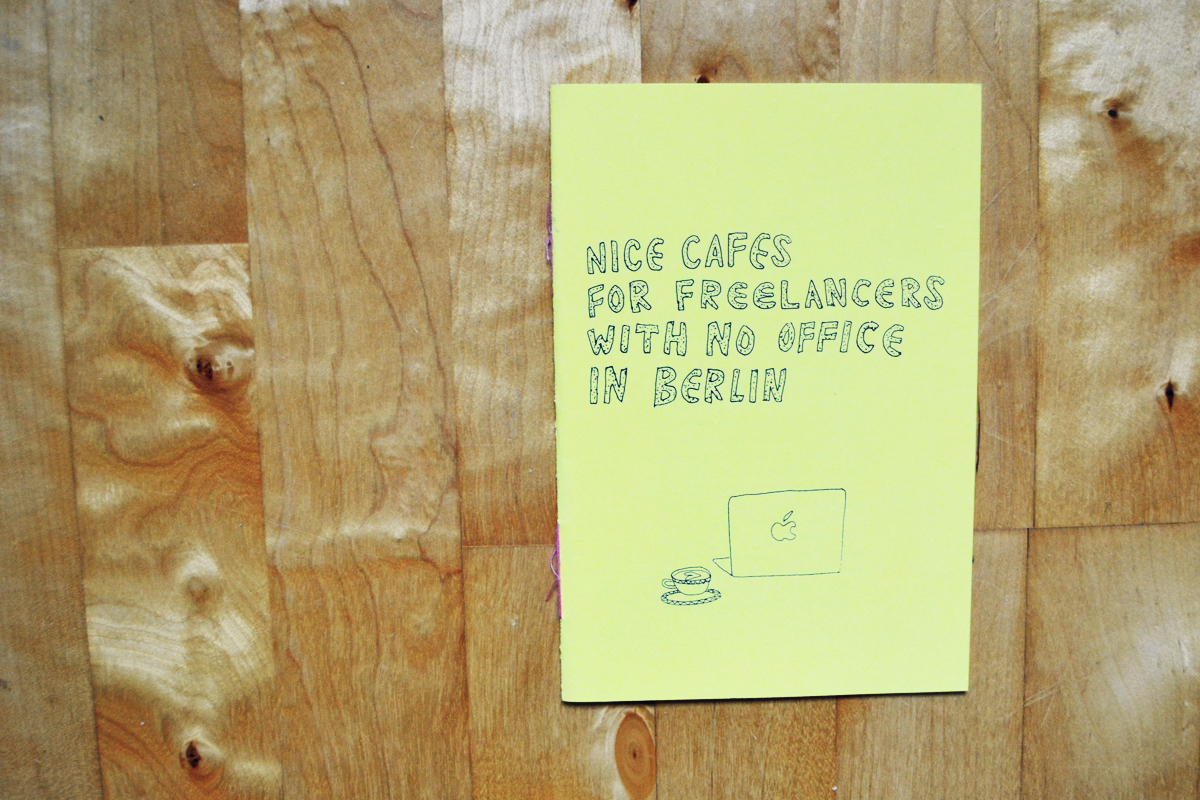 NICE CAFES
FOR FREELANCERS
WITH NO OFFICE
IN BERLIN